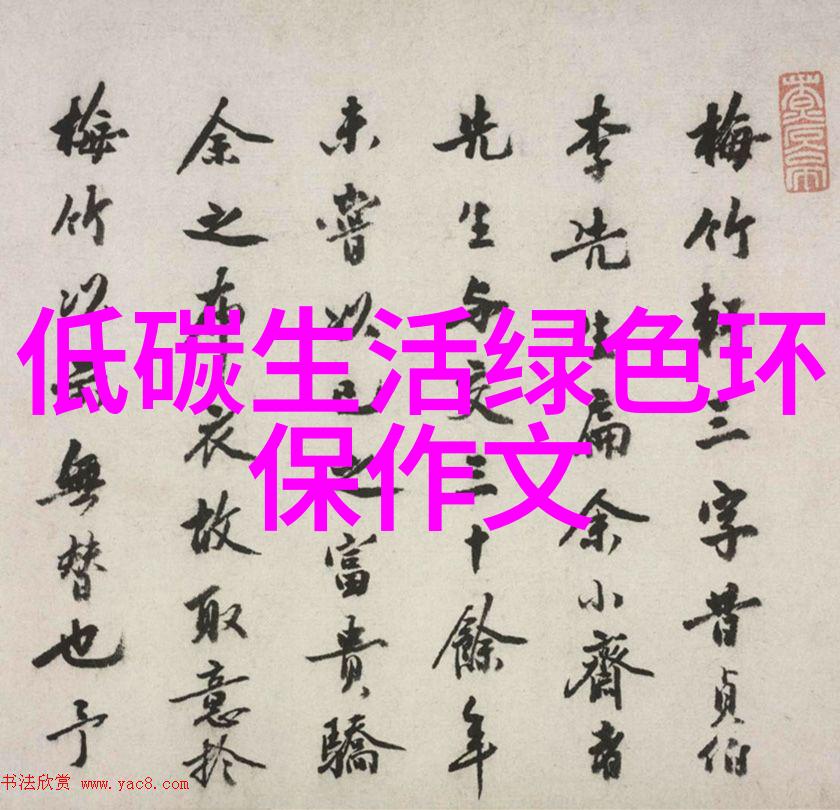 低碳生活绿色环
保作文
梅竹軒三字昔貞伯
李先生扁余小齋者
先生与交三十餘年
未嘗以己之富貴驕
余之布衣故取意於
梅竹以示無替也予
书法欣赏 www.yac8.com